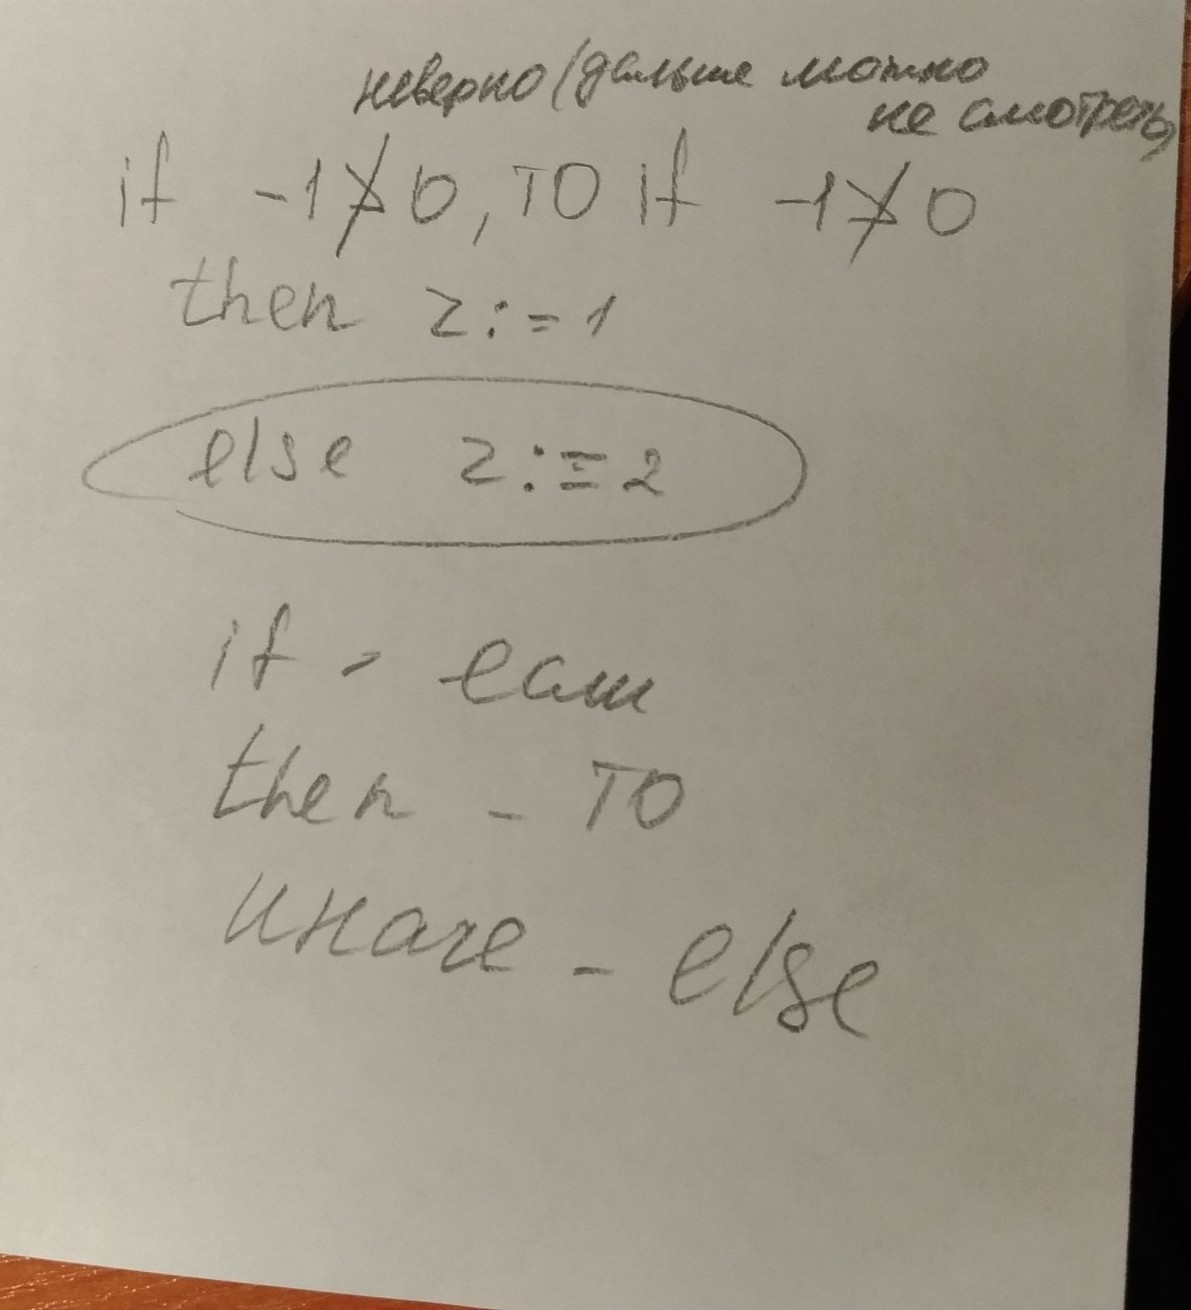 неверно (дальше можно
не смотреть)
if -1 ≯ 0, то if -1 ≯ 0
then z := 1
else z := 2
if - если
then - то
иначе - else